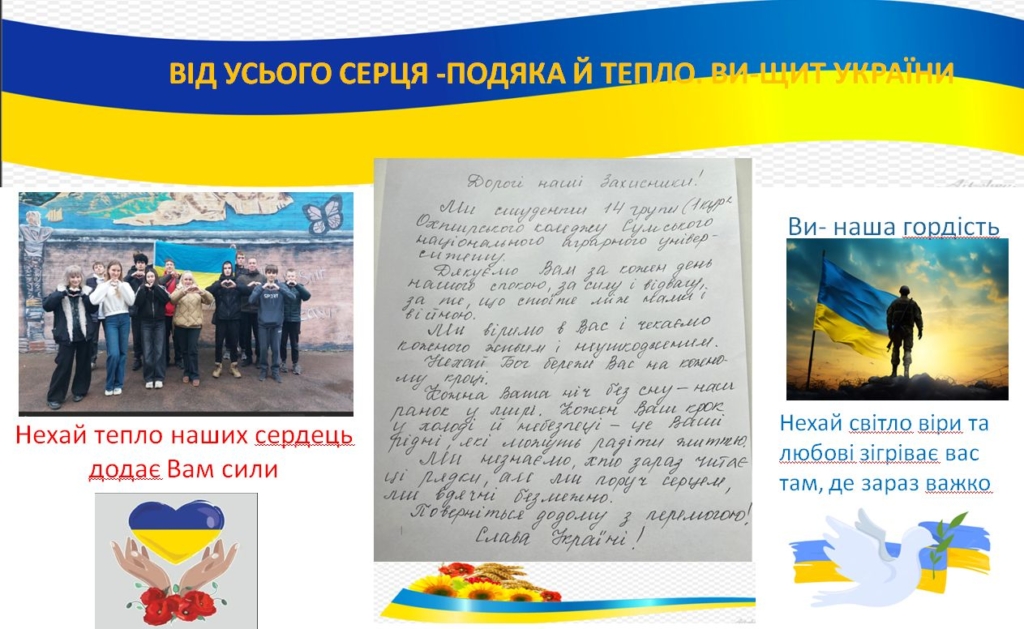 ВІД УСЬОГО СЕРЦЯ -ПОДЯКА Й ТЕПЛО. ВИ-ЩИТ УКРАЇНИ
Нехай тепло наших сердець
додає Вам сили
Дорогі наші Захисники!
Ми студенти 14 групи (1 курс
Охтирського коледжу Сумського
національного аграрного універ-
ситету.
Дякуємо Вам за кожен день
нашого спокою, за силу і відвагу,
за те, що стоїте між нами і
війною.
Ми віримо в Вас і чекаємо
кожного живим і неушкодженим.
Нехай Бог береже Вас на кожно-
му кроці.
Кожна Ваша ніч без сну – наш
ранок у мирі. Кожен Ваш крок
у холоді й небезпеці – це Ваші
рідні, які можуть радіти життю.
Ми незнаємо, хто зараз читає
ці рядки, але ми поруч серцем,
ми вдячні безмежно.
Поверніться додому з перемогою!
Слава Україні!
Ви- наша гордість
Нехай світло віри та
любові зігріває вас
там, де зараз важко